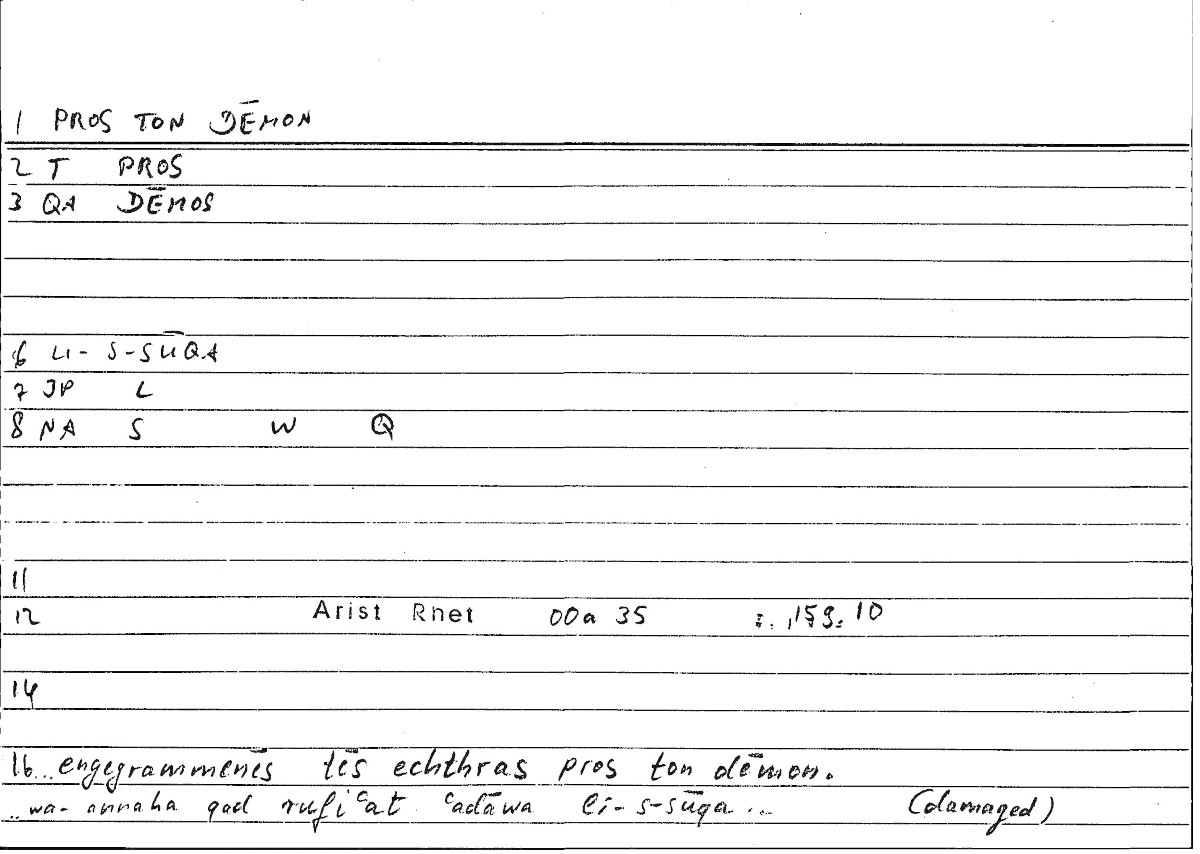 1 PROS TON DĒMON
2 T PROS
3 QA DĒMOS
6 LI- S-SŪQA
7 JP L
8 NA S W Q
11
12 Arist Rhet 00a 35 159.10
14
16 ...engegrammenēs tēs echthras pros ton dēmon.
..wa- annaha qad rufiʿat ʿadāwa li-s-sūqa... (damaged)